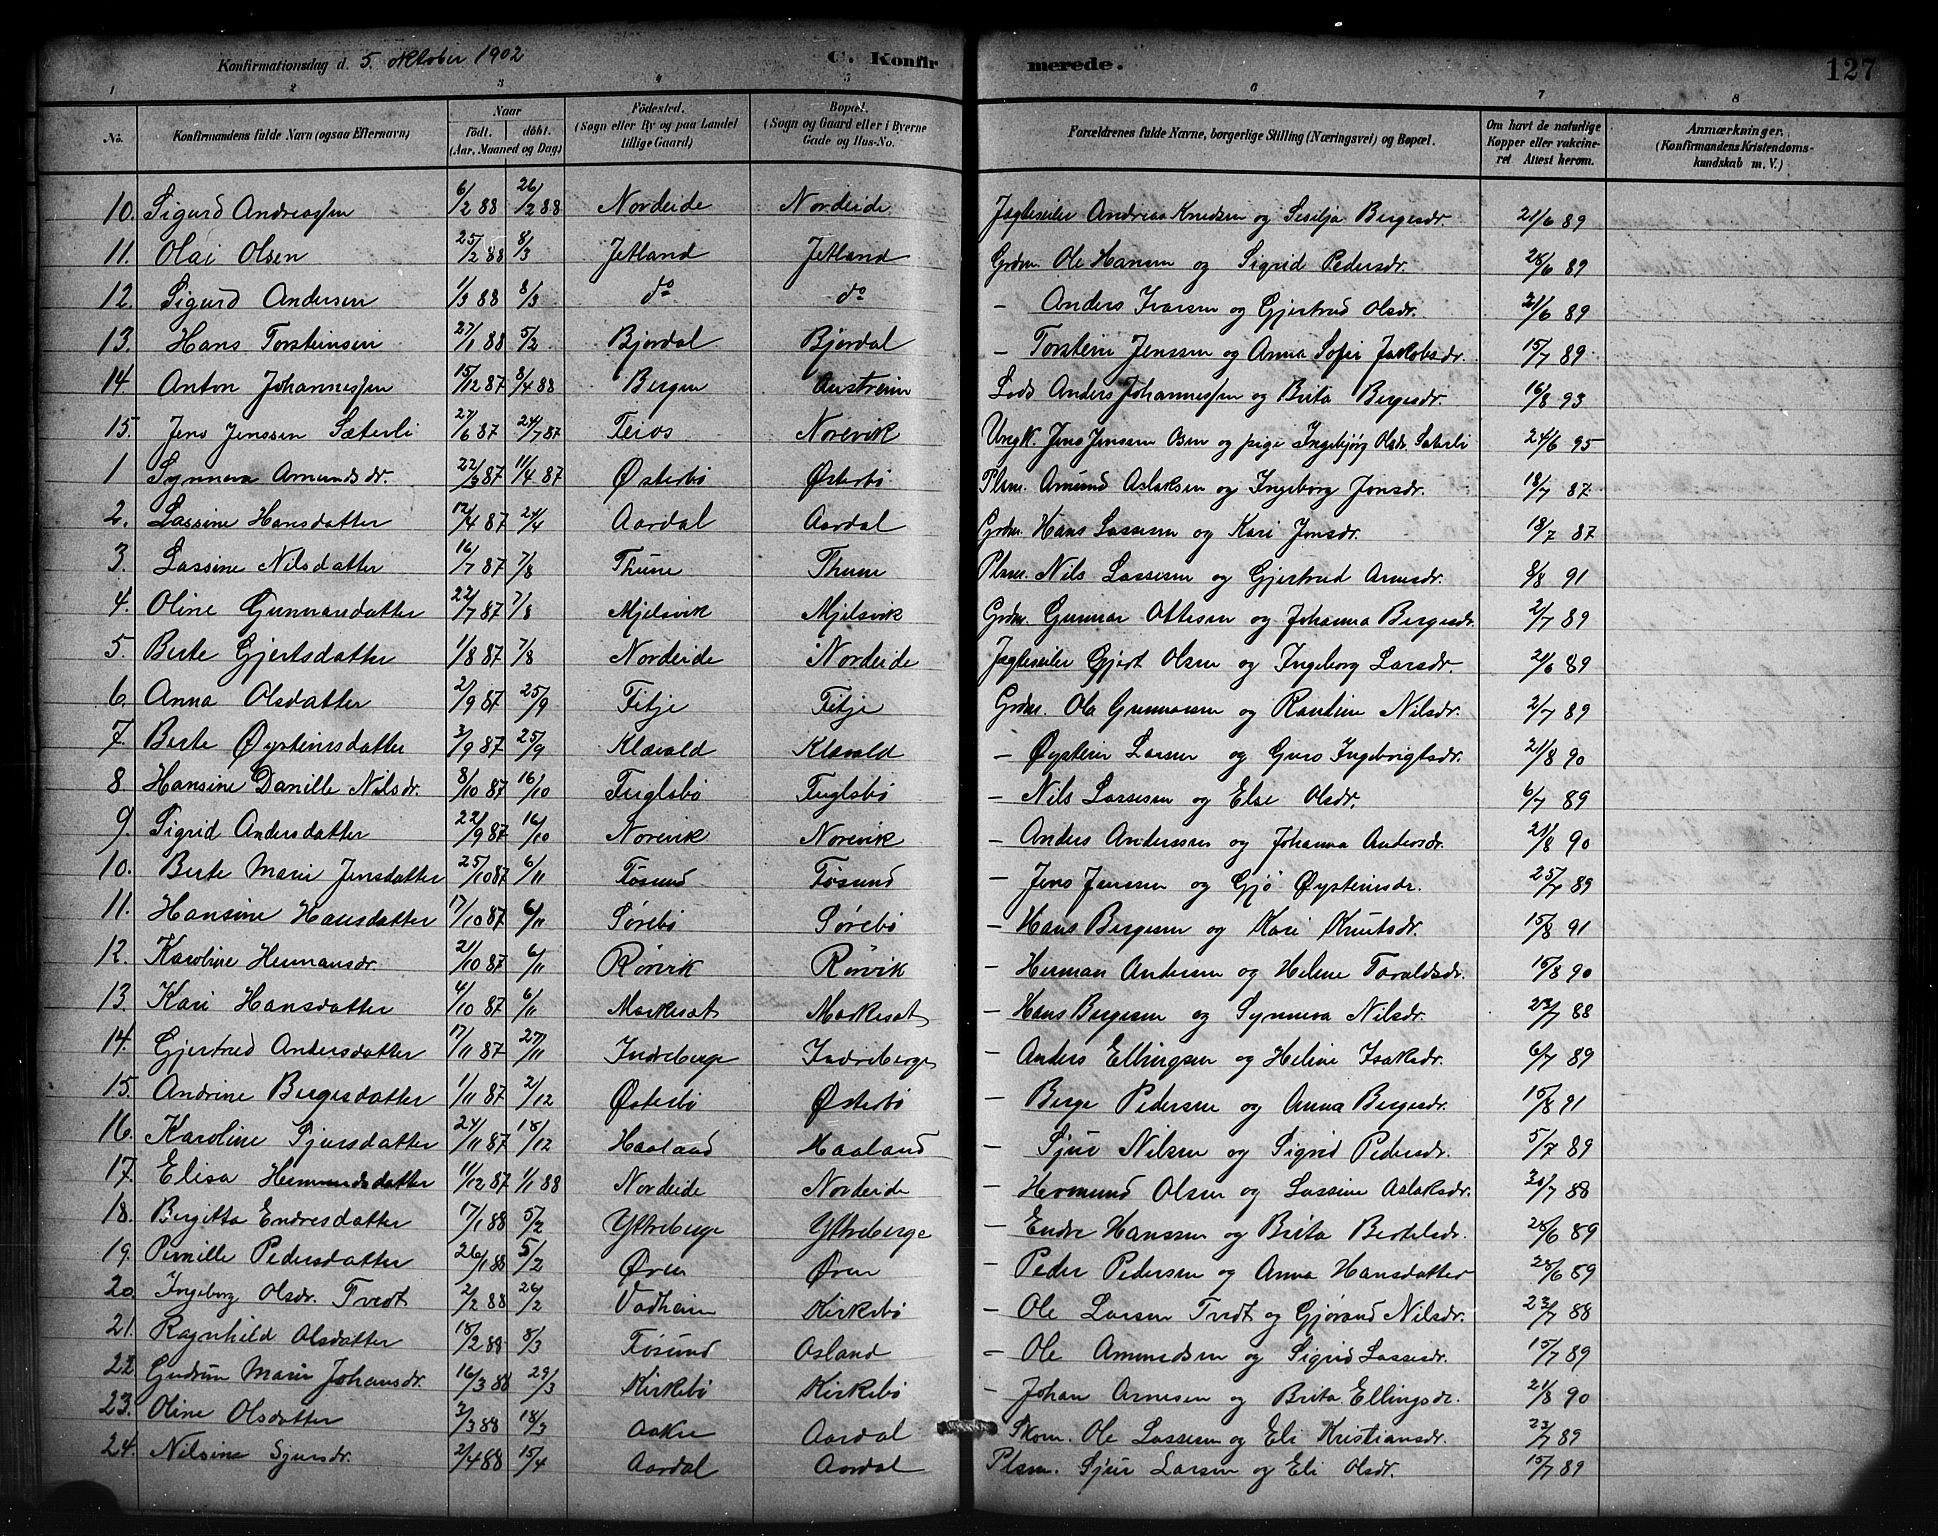 Konfirmationsdag d. 5. oktober 1902 C. Konfirmerede. 127
1 2 3 4 5 6 7 8
No. Konfirmandens fulde Navn (ogsaa Efternavn) Naar født. døbt. (Aar, Maaned og Dag) Fødested. (Sogn eller By og paa Landet tillige Gaard) Bopæl. (Sogn og Gaard eller i Byerne Gade og Hus-No. Forældrenes fulde Navne, borgerlige Stilling (Næringsvei) og Bopæl. Om havt de naturlige Kopper eller vakcineret Attest herom. Anmærkninger. (Konfirmandens Kristendomskundskab m. V.)
10. Sigurd Andreassen 6/2 88 26/2 88 Nordeide Nordeide Jægteseiler Andreas Knudsen og Sesilja Bergesdr. 21/6 89
11. Olai Olsen 25/2 88 8/3 Jetland Jetland Grdm. Ole Hansen og Sigrid Pedersdr. 28/6 89
12 Sigurd Andersen 1/3 88 8/3 do do - Anders Ivarsen og Gjertrud Olsdr. 21/6 89
13. Hans Torsteinsen 27/1 88 5/2 Bjordal Bjordal - Torstein Jenssen og Anna Sofie Jakobsdr. 15/7 89
14 Anton Johannessen 15/12 87 8/4 88 Bergen Austreim Lods Anders Johannessen og Brita Bergesdr. 16/8 93
15. Jens Jenssen Sæterli 27/6 87 24/7 87 Feios Norevik Ungk. Jens Jenssen Osen og pige Ingebjørg Olsdr. Sæterli 24/6 95
1 Synneva Amundsdr. 22/3 87 11/4 87 Østerbø Østerbø Plsm. Amund Aslaksen og Ingeborg Jonsdr. 18/7 87
2. Lassine Hansdatter 12/4 87 24/4 Aardal Aardal Grdm. Hans Lassesen og Kari Jonsdr. 18/7 87
3. Lassine Nilsdatter 16/7 87 7/8 Thune Thune Plsm. Nils Lassesen og Gjertrud Arnesdr. 8/8 91
4. Oline Gunnarsdatter 22/7 87 7/8 Mjelsvik Mjelsvik Grdm. Gunnar Ottesen og Johanna Bergesdr. 2/7 89
5. Berte Gjertsdatter 1/8 87 7/8 Nordeide Nordeide Jægteseiler Gjert Olsen og Ingeborg Larsdr. 21/6 89
6. Anna Olsdatter 2/9 87 25/9 Titje Titje Grdm. Ole Gunnarsen og Rantine Nilsdr. 2/7 89
7. Berte Øysteinsdatter 3/9 87 25/9 Klævald Klævald - Øystein Larsen og Guro Ingebrigtsdr. 21/8 90
8 Hansine Danille Nilsdr. 8/10 87 16/10 Fuglsbø Fuglsbø - Nils Lassesen og Else Olsdr. 6/7 89
9. Sigrid Andersdatter 22/9 87 16/10 Norevik Norevik - Anders Anderssen og Johanna Andersdr. 21/8 90
10. Berte Marie Jensdatter 25/10 87 6/11 Føsund Føsund - Jens Jenssen og Gjø Øysteinsdr. 25/7 89
11. Hansine Hansdatter 17/10 87 6/11 Sørebø Sørebø - Hans Bergesen og Kari Knutsdr. 15/8 91
12. Karoline Hermansdr. 21/10 87 6/11 Rørvik Rørvik - Herman Andersen og Helene Taraldsdr. 15/8 90
13. Kari Hansdatter 4/10 87 6/11 Markesæt Markesæt - Hans Bergesen og Synneva Nilsdr. 23/7 88
14. Gjertrud Andersdatter 17/11 87 27/11 Indreberge Indreberge - Anders Ellingsen og Heline Isaksdr. 6/7 89
15. Andrine Bergesdatter 1/11 87 2/12 Østerbø Østerbø - Berge Pedersen og Anna Bergesdr. 15/8 91
16. Karoline Sjursdatter 24/11 87 18/12 Haaland Haaland - Sjur Nilsen og Sigrid Pedersdr. 5/7 89
17. Elisa Hermundsdatter 11/12 87 1/1 88 Nordeide Nordeide - Hermund Olsen og Lassine Aslaksdr. 30/7 88
18. Bergitta Endresdatter 17/1 88 5/2 Ytreberge Ytreberge - Endre Hanssen og Brita Bertelsdr. 28/6 89
19. Pernille Pedersdatter 26/1 88 5/2 Øren Øren - Peder Pedersen og Anna Hansdatter 28/6 89
20. Ingeborg Olsdr. Tvedt 2/2 88 26/2 Vadheim Kirkebø - Ole Larsen Tvedt og Gjørand Nilsdr. 23/7 88
21. Ragnhild Olsdatter 18/2 88 8/3 Føsund Osland - Ole Ammundsen og Sigrid Lassesdr. 15/7 89
22 Gudrun Marie Johansdr. 16/3 88 29/3 Kirkebø Kirkebø - Johan Arnesen og Brita Ellingsdr. 21/8 90
23. Oline Olsdatter 3/3 88 18/3 Aakre Aardal Skom. Ole Lassesen og Eli Kristiansdr. 23/7 89
24. Nilsine Sjursdr. 2/4 88 15/4 Aardal Aardal Plsm. Sjur Larsen og Eli Olsdr. 15/7 89